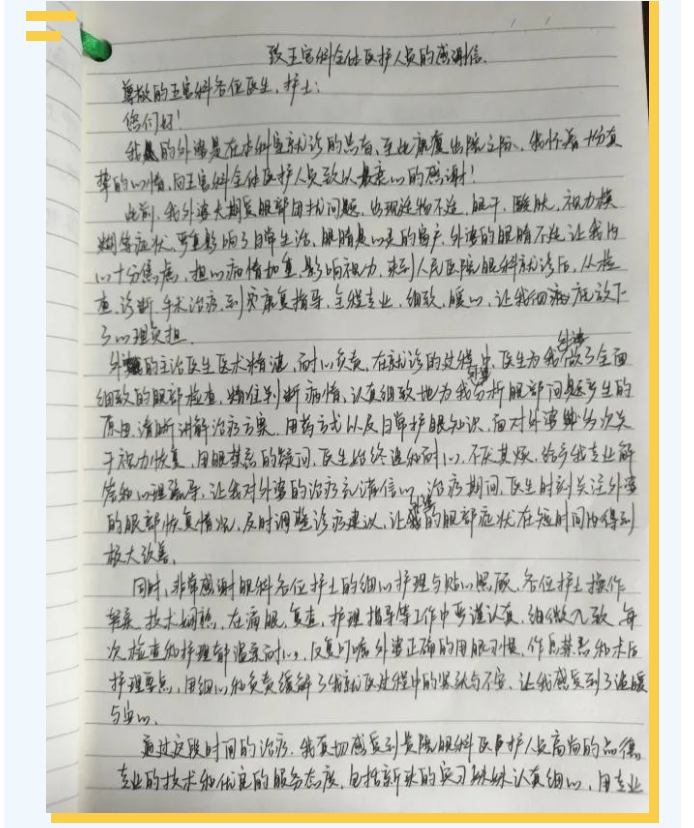 致五官科全体医护人员的感谢信.
尊敬的五官科各位医生、护士：
您们好！
我的外婆是在本科室就诊的患者，至此康复出院之际，我怀着十分真
挚的心情，向五官科全体医护人员致以最衷心的感谢！
此前，我外婆长期受眼部困扰问题，出现迎物不适，眼干，酸胀，视力模
糊等症状，严重影响了日常生活，眼睛是心灵的窗户，外婆的眼睛不适，让我内
心十分焦虑，担心病情加重，影响视力，来到人民医院眼科就诊后，从检
查、诊断、手术治疗，到康复指导，全程专业、细致、暖心，让我们放下
了心理负担.
外婆的主治医生医术精湛，耐心负责，在就诊的过程中，医生为外婆做了全面
细致的眼部检查，精准判断病情，认真细致地为外婆分析眼部问题产生的
原因，清晰讲解治疗方案、用药方式以及日常护眼知识，面对外婆多次关
于视力恢复、用眼禁忌的疑问，医生始终温和耐心，不厌其烦，给予我专业解
答和心理疏导，让我对外婆的治疗充满信心，治疗期间，医生时刻关注外婆
的眼部恢复情况，及时调整诊疗建议，让外婆的眼部症状在短时间内得到
极大改善，
同时，非常感谢眼科各位护士的细心护理与贴心照顾，各位护士操作
轻柔，技术娴熟，在滴眼、复查、护理指导等工作中严谨认真，细微入致，每
次检查和护理都温柔耐心，反复叮嘱外婆正确的用眼习惯，作息禁忌和术后
护理要点，用细心和负责缓解了我就医过程中的紧张与不安，让我感受到了温暖
与安心.
通过这段时间的治疗，我真切感受到贵院眼科医护人员高尚的品德，
专业的技术和优良的服务态度，包括新来的实习妹妹认真细心，用专业